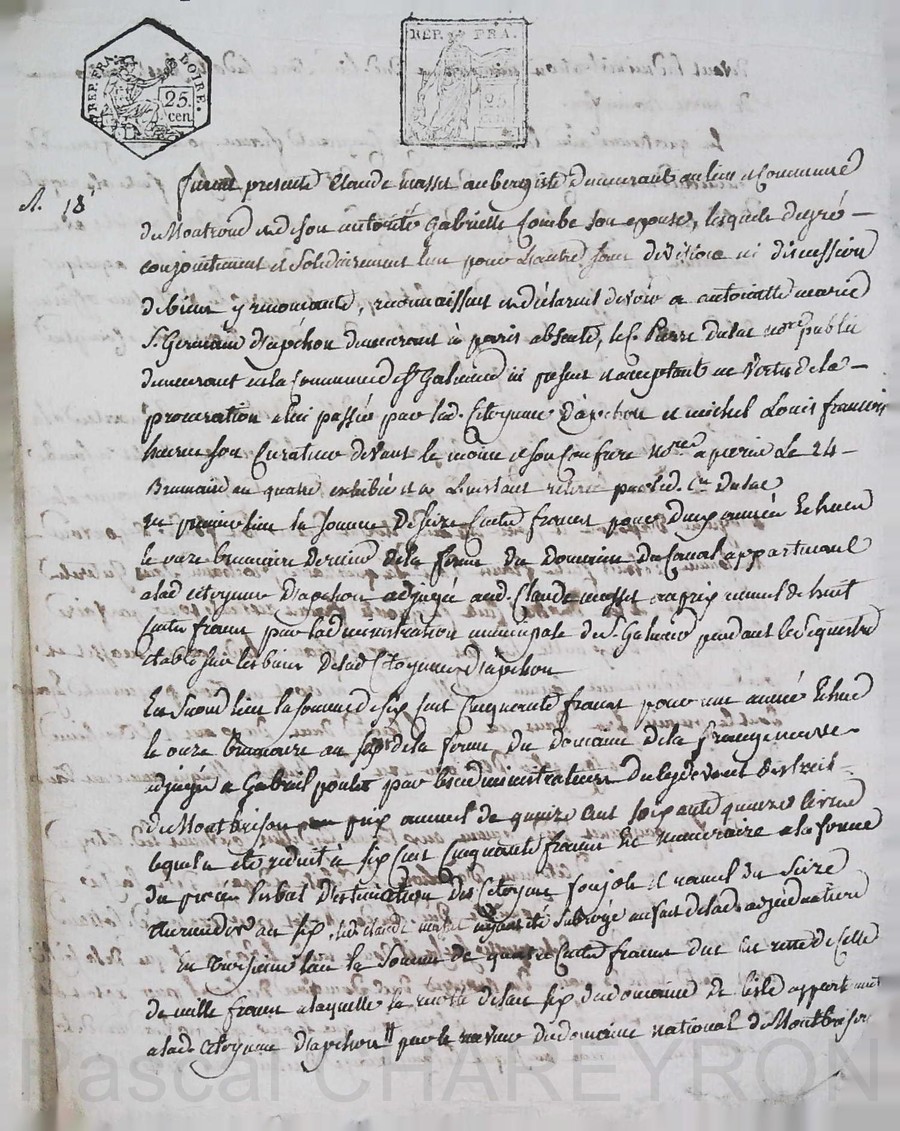 REP. FRA. DOIRE.
25. cen.
REP. FRA.
25
N. 18
furent presents Claude masset aubergiste demeurant au lieu et Commune
de Montrond et de son autorité Gabrielle Combe son epouse, lesquels de gré
conjointement et Solidairement l'un pour l'autre sans division ni discussion
de biens y renonçants, reconnaissent et déclarent devoir a antoinette marie
St. Germain d'apchon demeurant à paris absente, le C. Pierre Dulac nore. public
demeurant en la Commune de St Galmier ici present et acceptant en vertu de la
procuration a lui passée par lad. Citoyenne D'apchon et michel Louis francois
son Curateur devant le moine et son Confrere nores. a paris Le 24
Brumaire an quatre exhibée et a L'instant retirée par led. Cen Dulac
En premier lieu la somme De seize Cents francs pour deux années Echues
le onze brumaire dernier de la ferme du Domaine Du Canal appartenant
a lad citoyenne D'apchon adjugée aud. Claude masset au prix annuel de huit
Cents francs par l'administration municipale de St. Galmier pendant le Sequestre
établi sur les biens De lad Citoyenne D'apchon
En Second lieu la somme de six Cent Cinquante francs pour une année Echue
le onze brumaire an six de la ferme du Domaine De la grange neuve
adjugée a Gabriel poulet par les administrateurs du cy devant District
de Montbrison au prix annuel de quinze Cent soixante quinze livres
lequel a été réduit à six Cent Cinquante francs En numéraire a la forme
du procès verbal D'estimation des Citoyens et du Seize
an six, led claude masset ayant été subrogé au fait de lad. adjudication
En troisieme lieu la Somme de quatre Cents francs due En reste de Celle
de mille francs a laquelle la recolte de l'an six du domaine de l'isle appartenant
a lad Citoyenne D'apchon par le receveur du domaine national de Montbrison
Pascal CHAREYRON